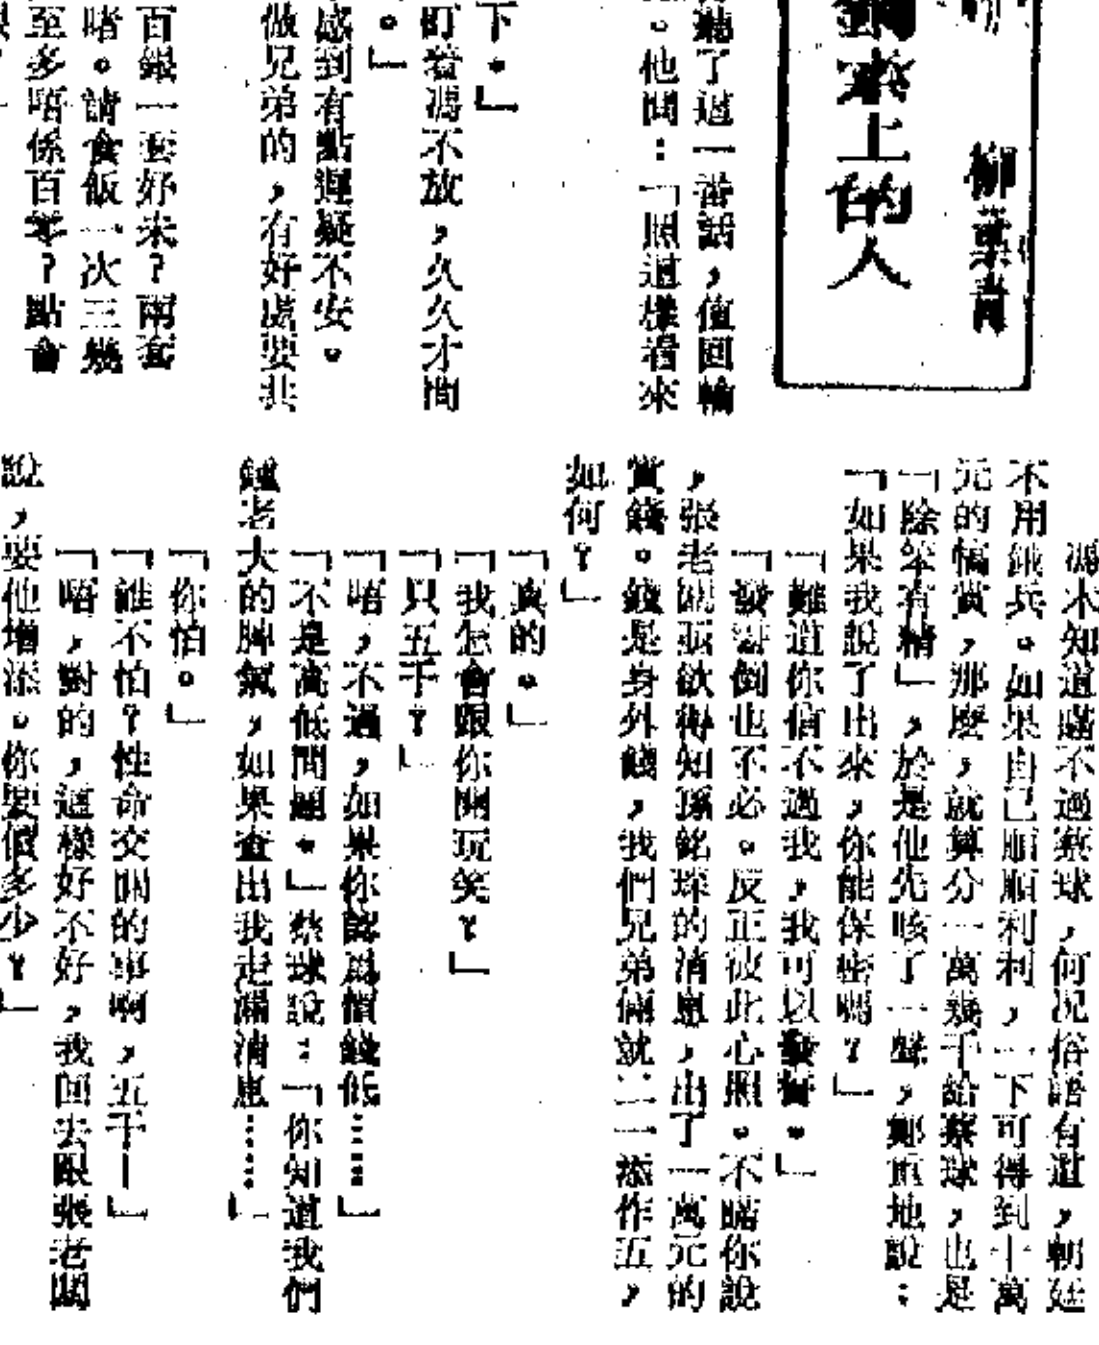 柳葉青
鋼索上的人
聽了這一番話,值回輪
。他問:「照這樣看來
下。」
盯着馮不放,久久才問
。」
感到有點遲疑不安。
做兄弟的,有好處要共
百銀一套好未?兩套
啫。請食飯一次三幾
至多唔係百零?點會
馮木知道瞞不過蔡球,何況俗語有道,朝廷
不用餓兵。如果自己順順利利,一下可得到十萬
元的犒賞,那麼,就算分一萬幾千給蔡球,也是
「除笨有精」,於是他先咳了一聲,鄭重地說:
「如果我說了出來,你能保密嗎?」
「難道你信不過我,我可以發誓。」
「發誓倒也不必。反正彼此心照。不瞞你說
,張老闆亟欲得知孫銘琛的消息,出了一萬元的
賞錢。錢是身外錢,我們兄弟倆就二一添作五,
如何?」
「真的。」
「我怎會跟你開玩笑?」
「只五千?」
「唔,不過,如果你認爲價錢低……」
「不是高低問題。」蔡球說:「你知道我們
鍾老大的脾氣,如果查出我走漏消息……」
「你怕。」
「誰不怕?性命交關的事啊,五千—」
「唔,對的,這樣好不好,我回去跟張老闆
說,要他增添。你要價多少?」